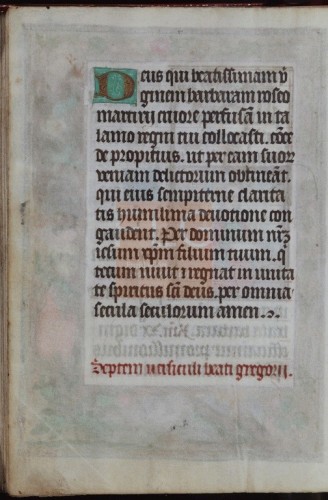 Deus qui beatissimam v̄
ginem barbaram roseo
martirij cruore perfusā in ta
lamo regni tui collocasti. cōce
de propitius. ut per eam suor̄
veniam delictorum obtineāt.
qui eius sempiterne clarita
tis humilima deuotione con
gaudent. Per dominum nr̄m
iesum xp̄m filium tuum. q̄
tecum viuit ⁊ regnat in vnita
te spiritus scī deus. per omnia
secula seculorum amen.
Septem versiculi beati gregorii.